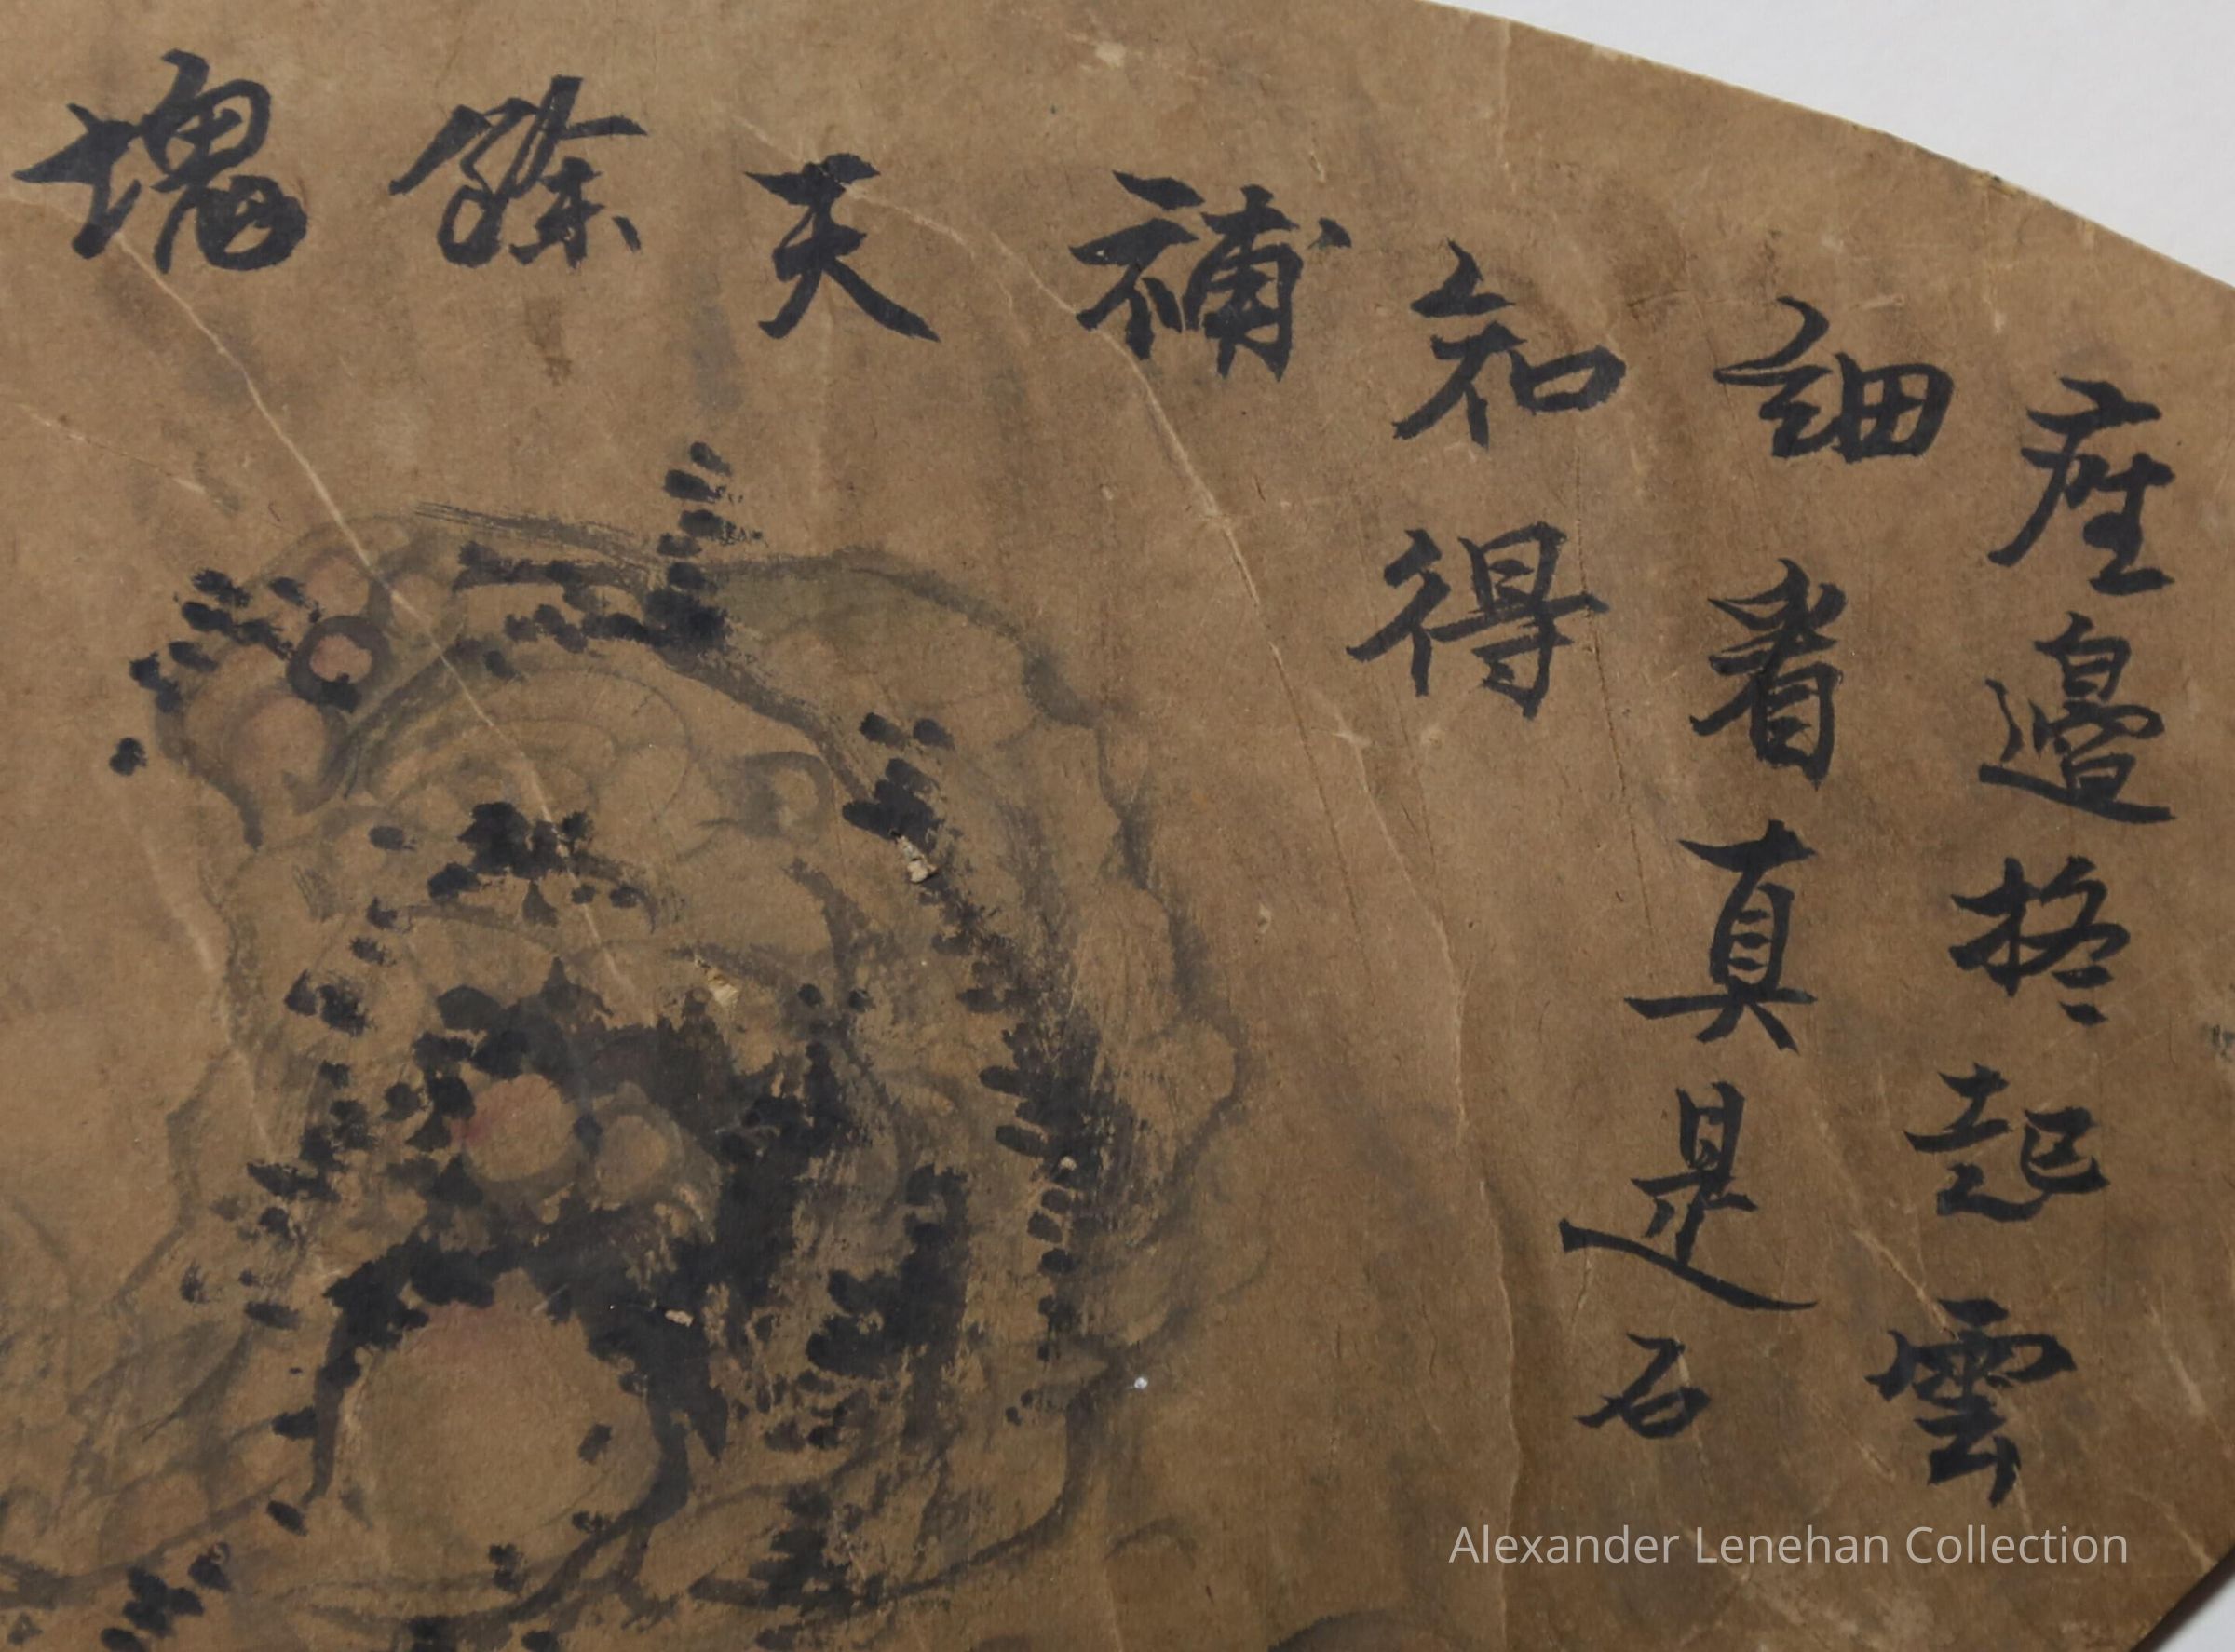 座邊起雲
細看真是石
知得
補
天
餘
塊
Alexander Lenehan Collection